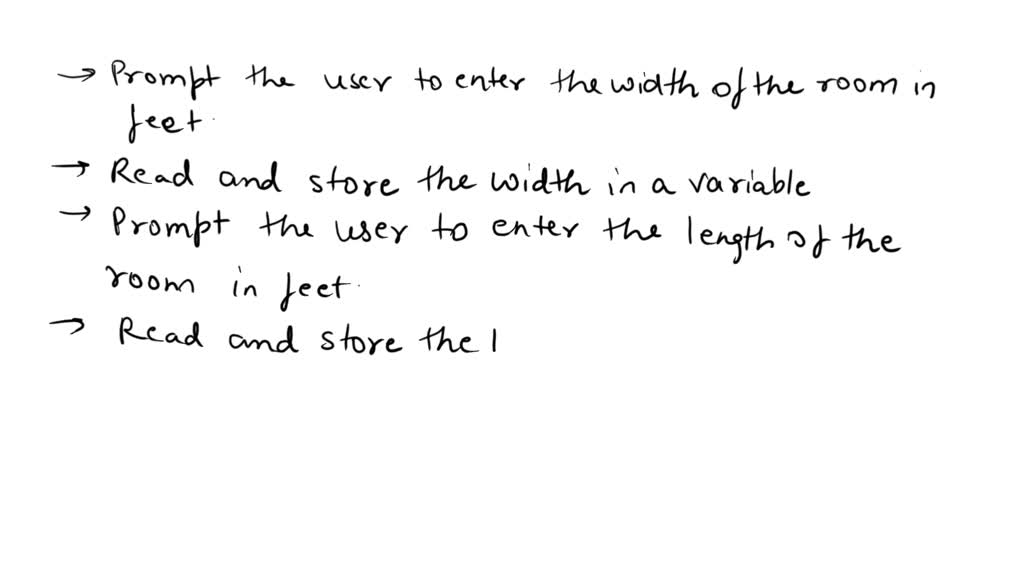 → Prompt the user to enter the width of the room in
feet.
→ Read and store the width in a variable
→ Prompt the user to enter the length of the
room in feet.
→ Read and store the l